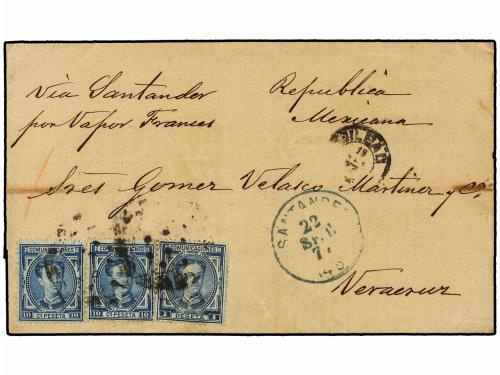 Via Santander
por Vapor Frances
Republica
Mexicana
BILBAO
18
Sres Gomez Velasco Martinez y Ca
SANTANDER
22
SET.
Veracruz
COMUNICACIONES
10 CS PESETA 10
COMUNICACIONES
10 CS PESETA 10
COMUNICACIONES
1 PESETA 1